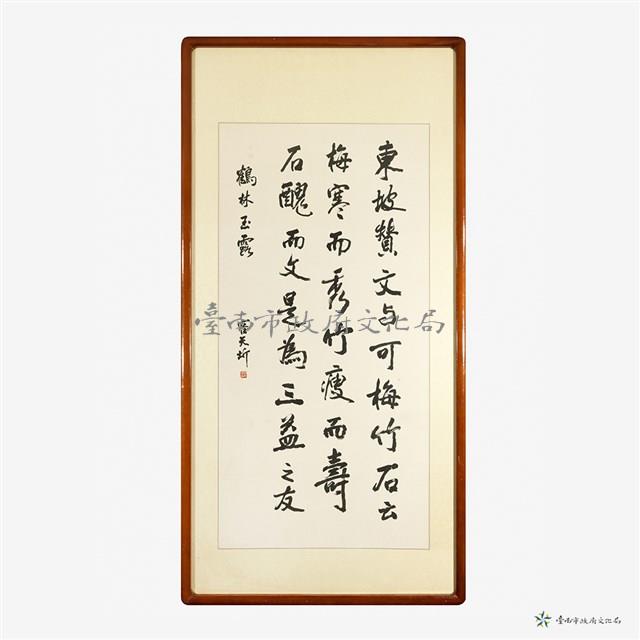 東坡贊文与可梅竹石云
梅寒而秀竹瘦而壽
石醜而文是為三益之友
鶴林玉露
天圻
臺南市政府文化局
臺南市政府文化局